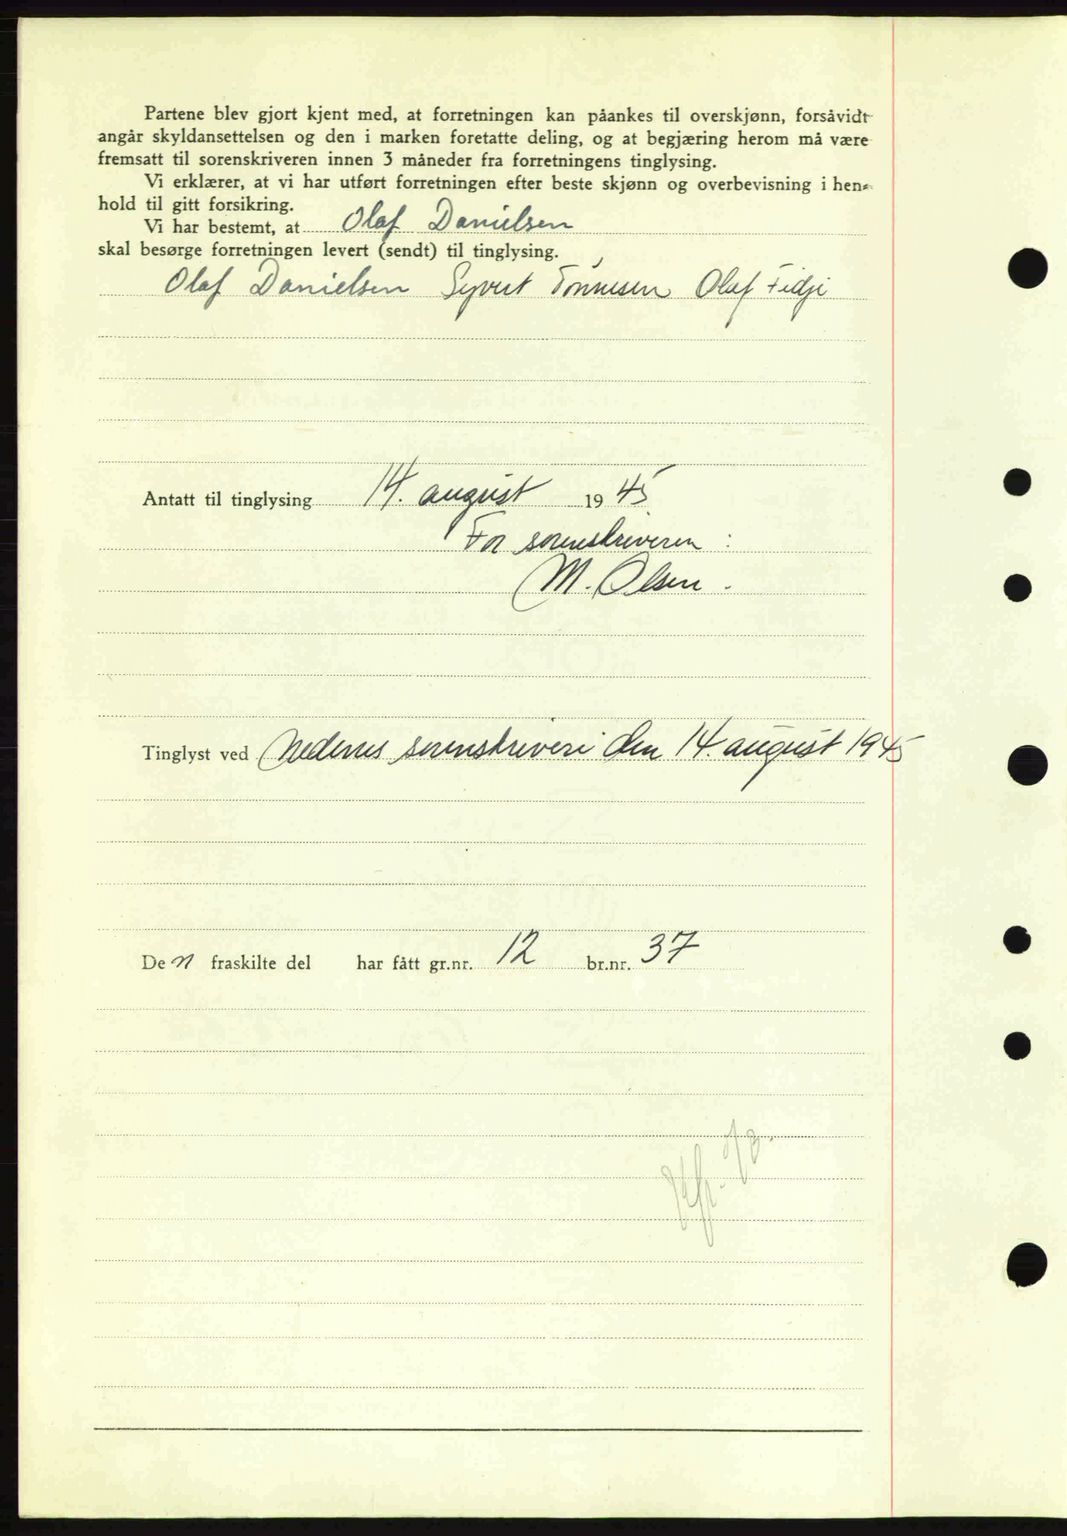 Partene blev gjort kjent med, at forretningen kan påankes til overskjønn, forsåvidt
angår skyldansettelsen og den i marken foretatte deling, og at begjæring herom må være
fremsatt til sorenskriveren innen 3 måneder fra forretningens tinglysing.
Vi erklærer, at vi har utført forretningen efter beste skjønn og overbevisning i hen-
hold til gitt forsikring.
Vi har bestemt, at Olaf Danielsen
skal besørge forretningen levert (sendt) til tinglysing.
Olaf Danielsen Syvert Tønnesen Olaf Fidje
Antatt til tinglysing 14. august 1945
For sorenskriveren :
M. Olsen.
Tinglyst ved Nedenes sorenskriveri den 14. august 1945
Den fraskilte del har fått gr.nr. 12 br.nr. 37